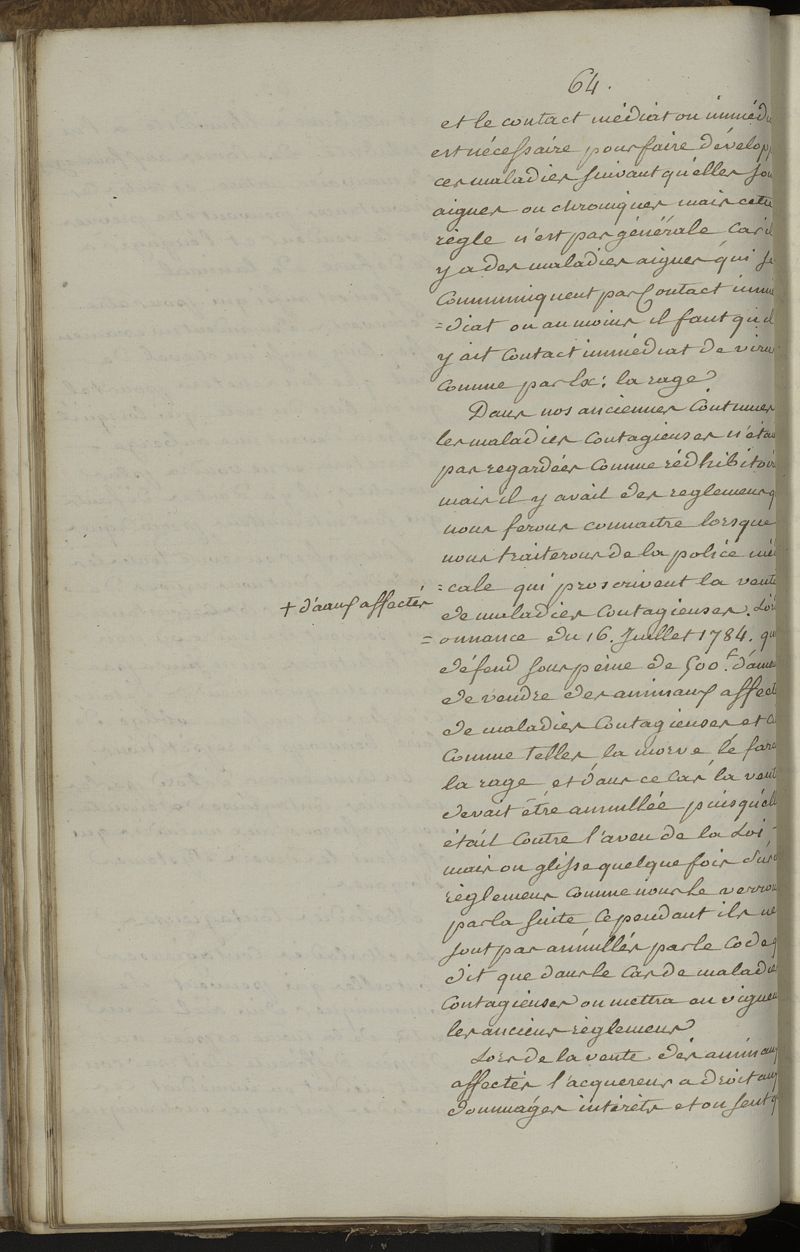 64.
et le contact médiat ou immédi
est nécessaire pour faire dévelop
ces maladies suivant qu'elles so
aigues ou chroniques mais cette
règle n'est pas générale car il
y a des maladies aigues qui se
communiquent par Contact immé
=diat ou au moins il faut qu'il
y ait Contact immédiat de virus
comme par Ex: la rage.
Dans nos anciennes Coutumes
les maladies Contagieuses n'étai
pas regardées comme rédhibitoir
mais il y avait des reglemens q
nous ferons connaitre lorsque
nous traiterons de la police mé
=cale qui proscrivent la vente
+ d'aaux affectés
de maladies Contagieuses. L'or
=onnance du 16. Juillet 1784. qu
défend sous peine de 500.f d'ame
de vendre des animaux affect
de maladies Contagieuses et
comme telles la morve le farc
la rage et dans ce Cas la vent
devait être annullée puisqu'ell
était Contre l'aveu de la Loi
mais on glisse quelque fois
règlemens comme nous le verron
par la suite Cependant ils ne
sont pas annullés par le Code q
dit que dans le Cas de maladie
Contagieuses on mettra en vigueu
les anciens règlemens
Lors de la vente des animaux
affectés l'acquereur a droit aux
dommages intérêts et on sent q